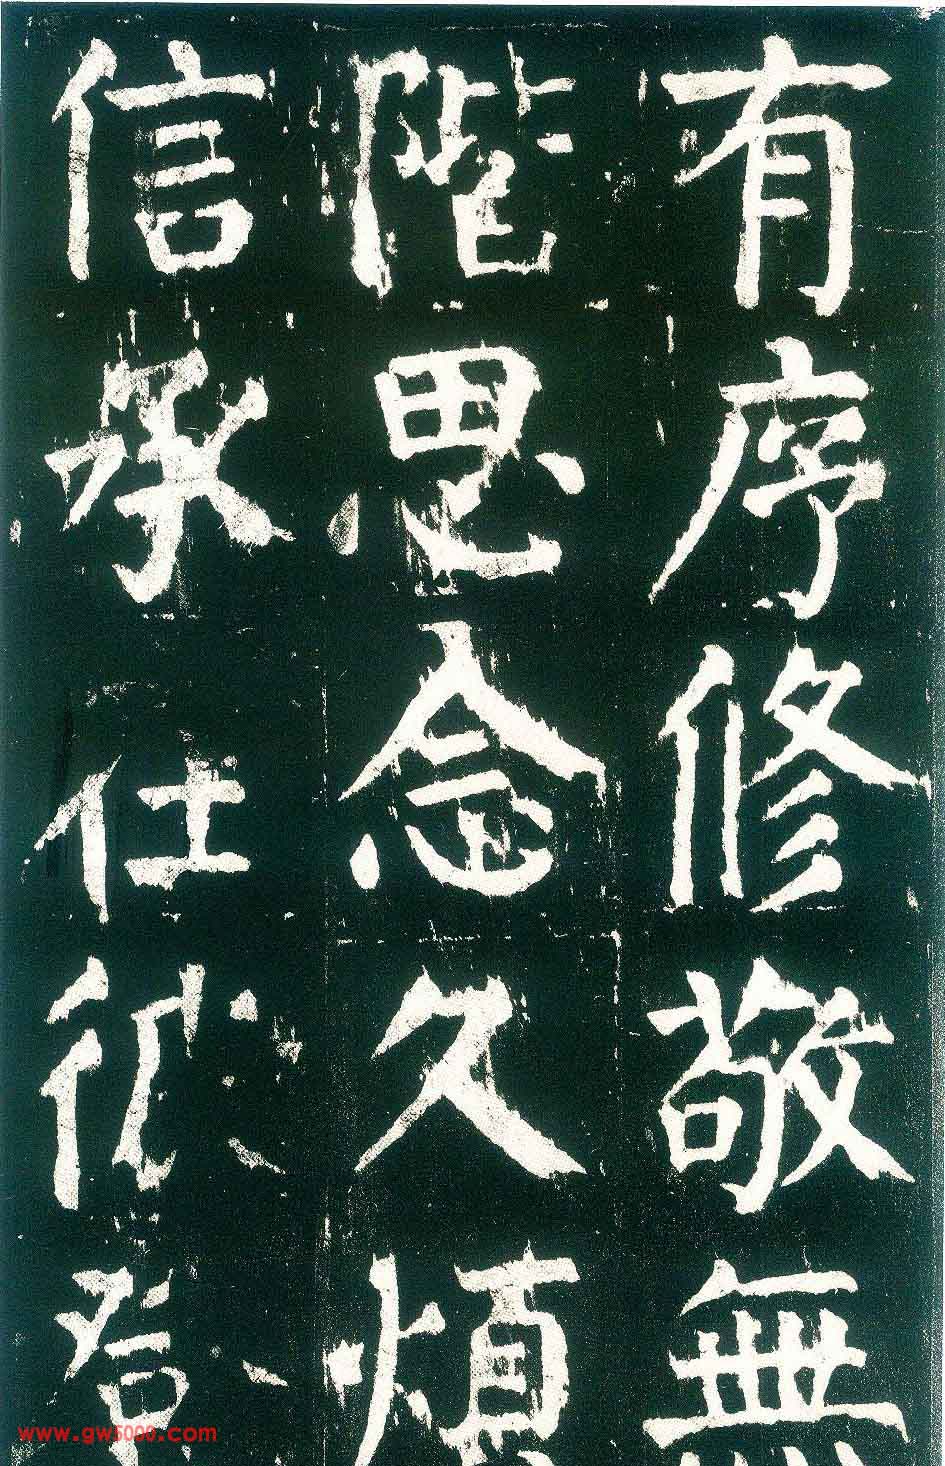 有序修敬無
階思念久煩
信承仕
www.gw5000.com